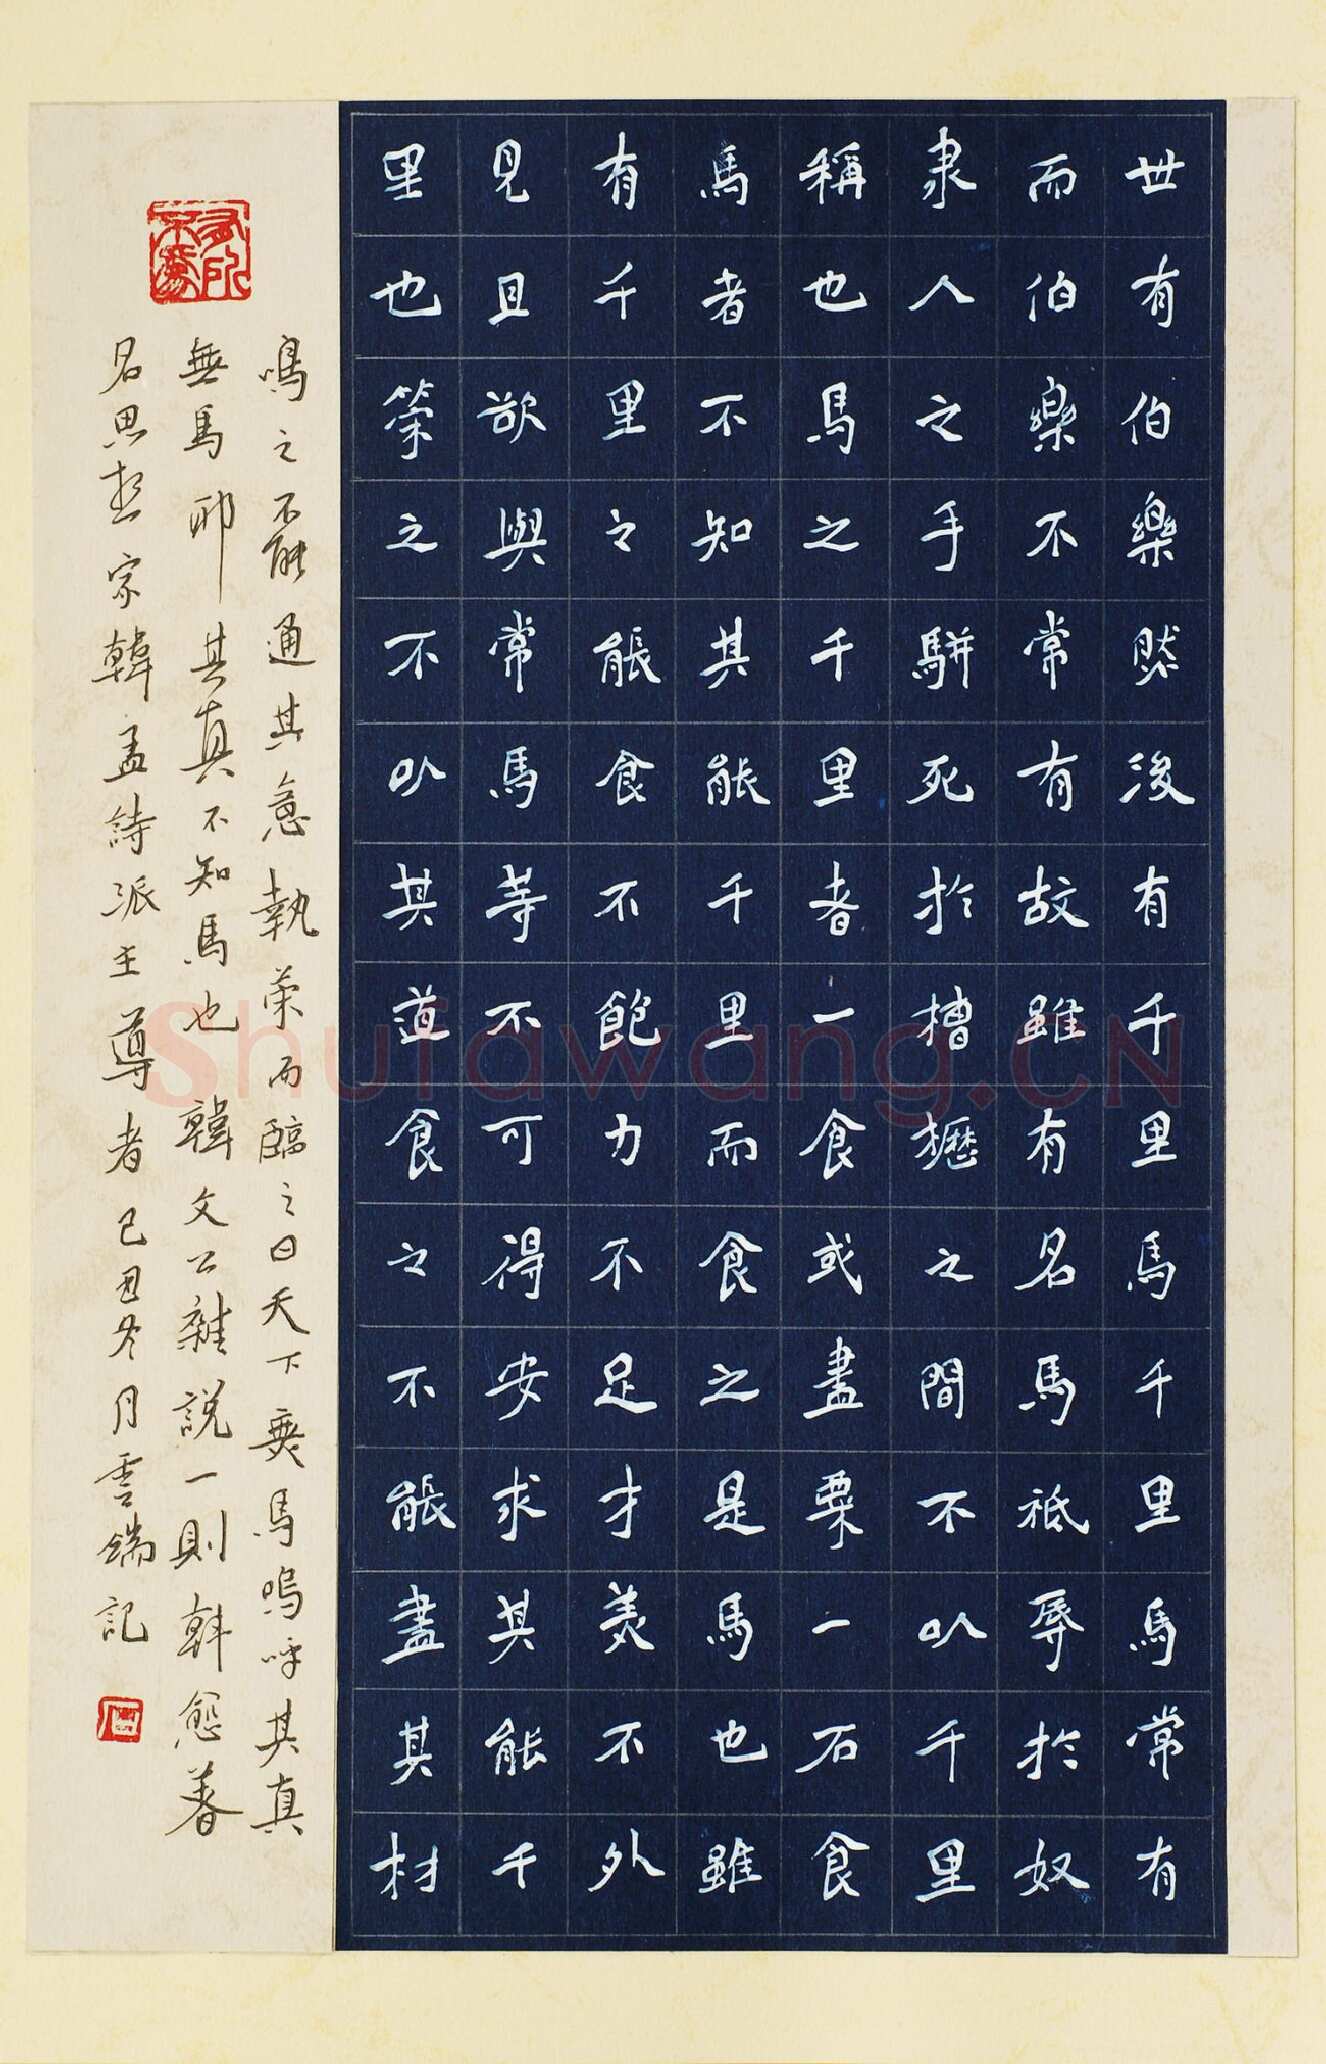 世有伯樂然後有千里馬千里馬常有
而伯樂不常有故雖有名馬祗辱於奴
隶人之手駢死於槽櫪之間不以千里
稱也馬之千里者一食或盡粟一石食
馬者不知其能千里而食之是馬也雖
有千里之能食不飽力不足才美不外
見且欲與常馬等不可得安求其能千
里也策之不以其道食之不能盡其材
鳴之不能通其意執策而臨之曰天下無馬嗚呼其真
無馬邪其真不知馬也 韓文公雜說一則韩愈著
名思想家韓孟詩派主導者己丑冬月雲端記
有所不為
Shufawang.CN